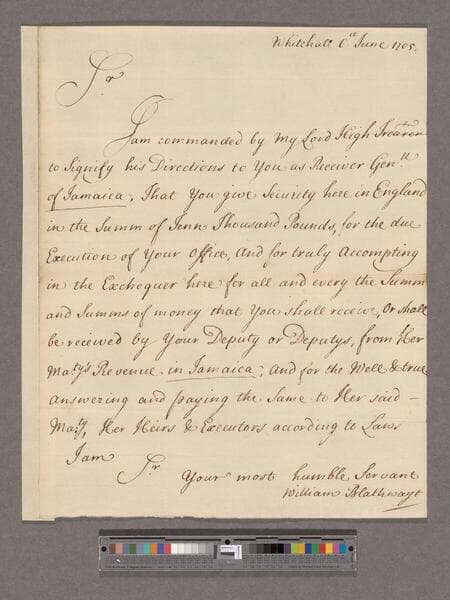 Whitehall 6th June 1705.
Sr
I am commanded by My Lord High Trearer
to Signify his Directions to You as Receiver Genll
of Jamaica, That You give Security here in England
in the Summ of Tenn Thousand Pounds, for the due
Execution of Your Office, And for truly Accompting
in the Exchequer here for all and every the Summ
and Summs of money that You shall receive, Or shall
be received by Your Deputy or Deputys, from Her
Matys Revenue in Jamaica; And for the Well & true
answering and paying the Same to Her said -
Maty, Her Heirs & Executors according to Laws
I am Sr
Your most humble Servant
William Blathwayt